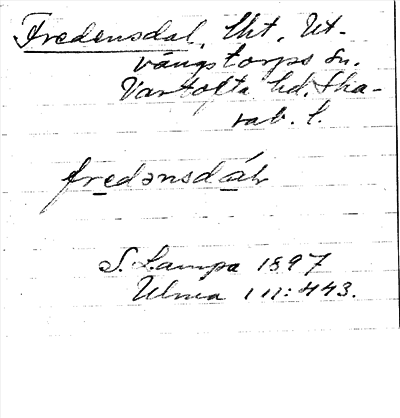 Fredensdal, lht, Ut-
vängstorps sn.
Vartofta hd. Ska-
rab. l.
fredənsdáh
S. Lampa 1897
Ulma 111:443.